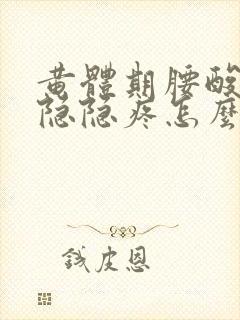 黄體期腰酸
隐隐疼怎麼
钱皮恩